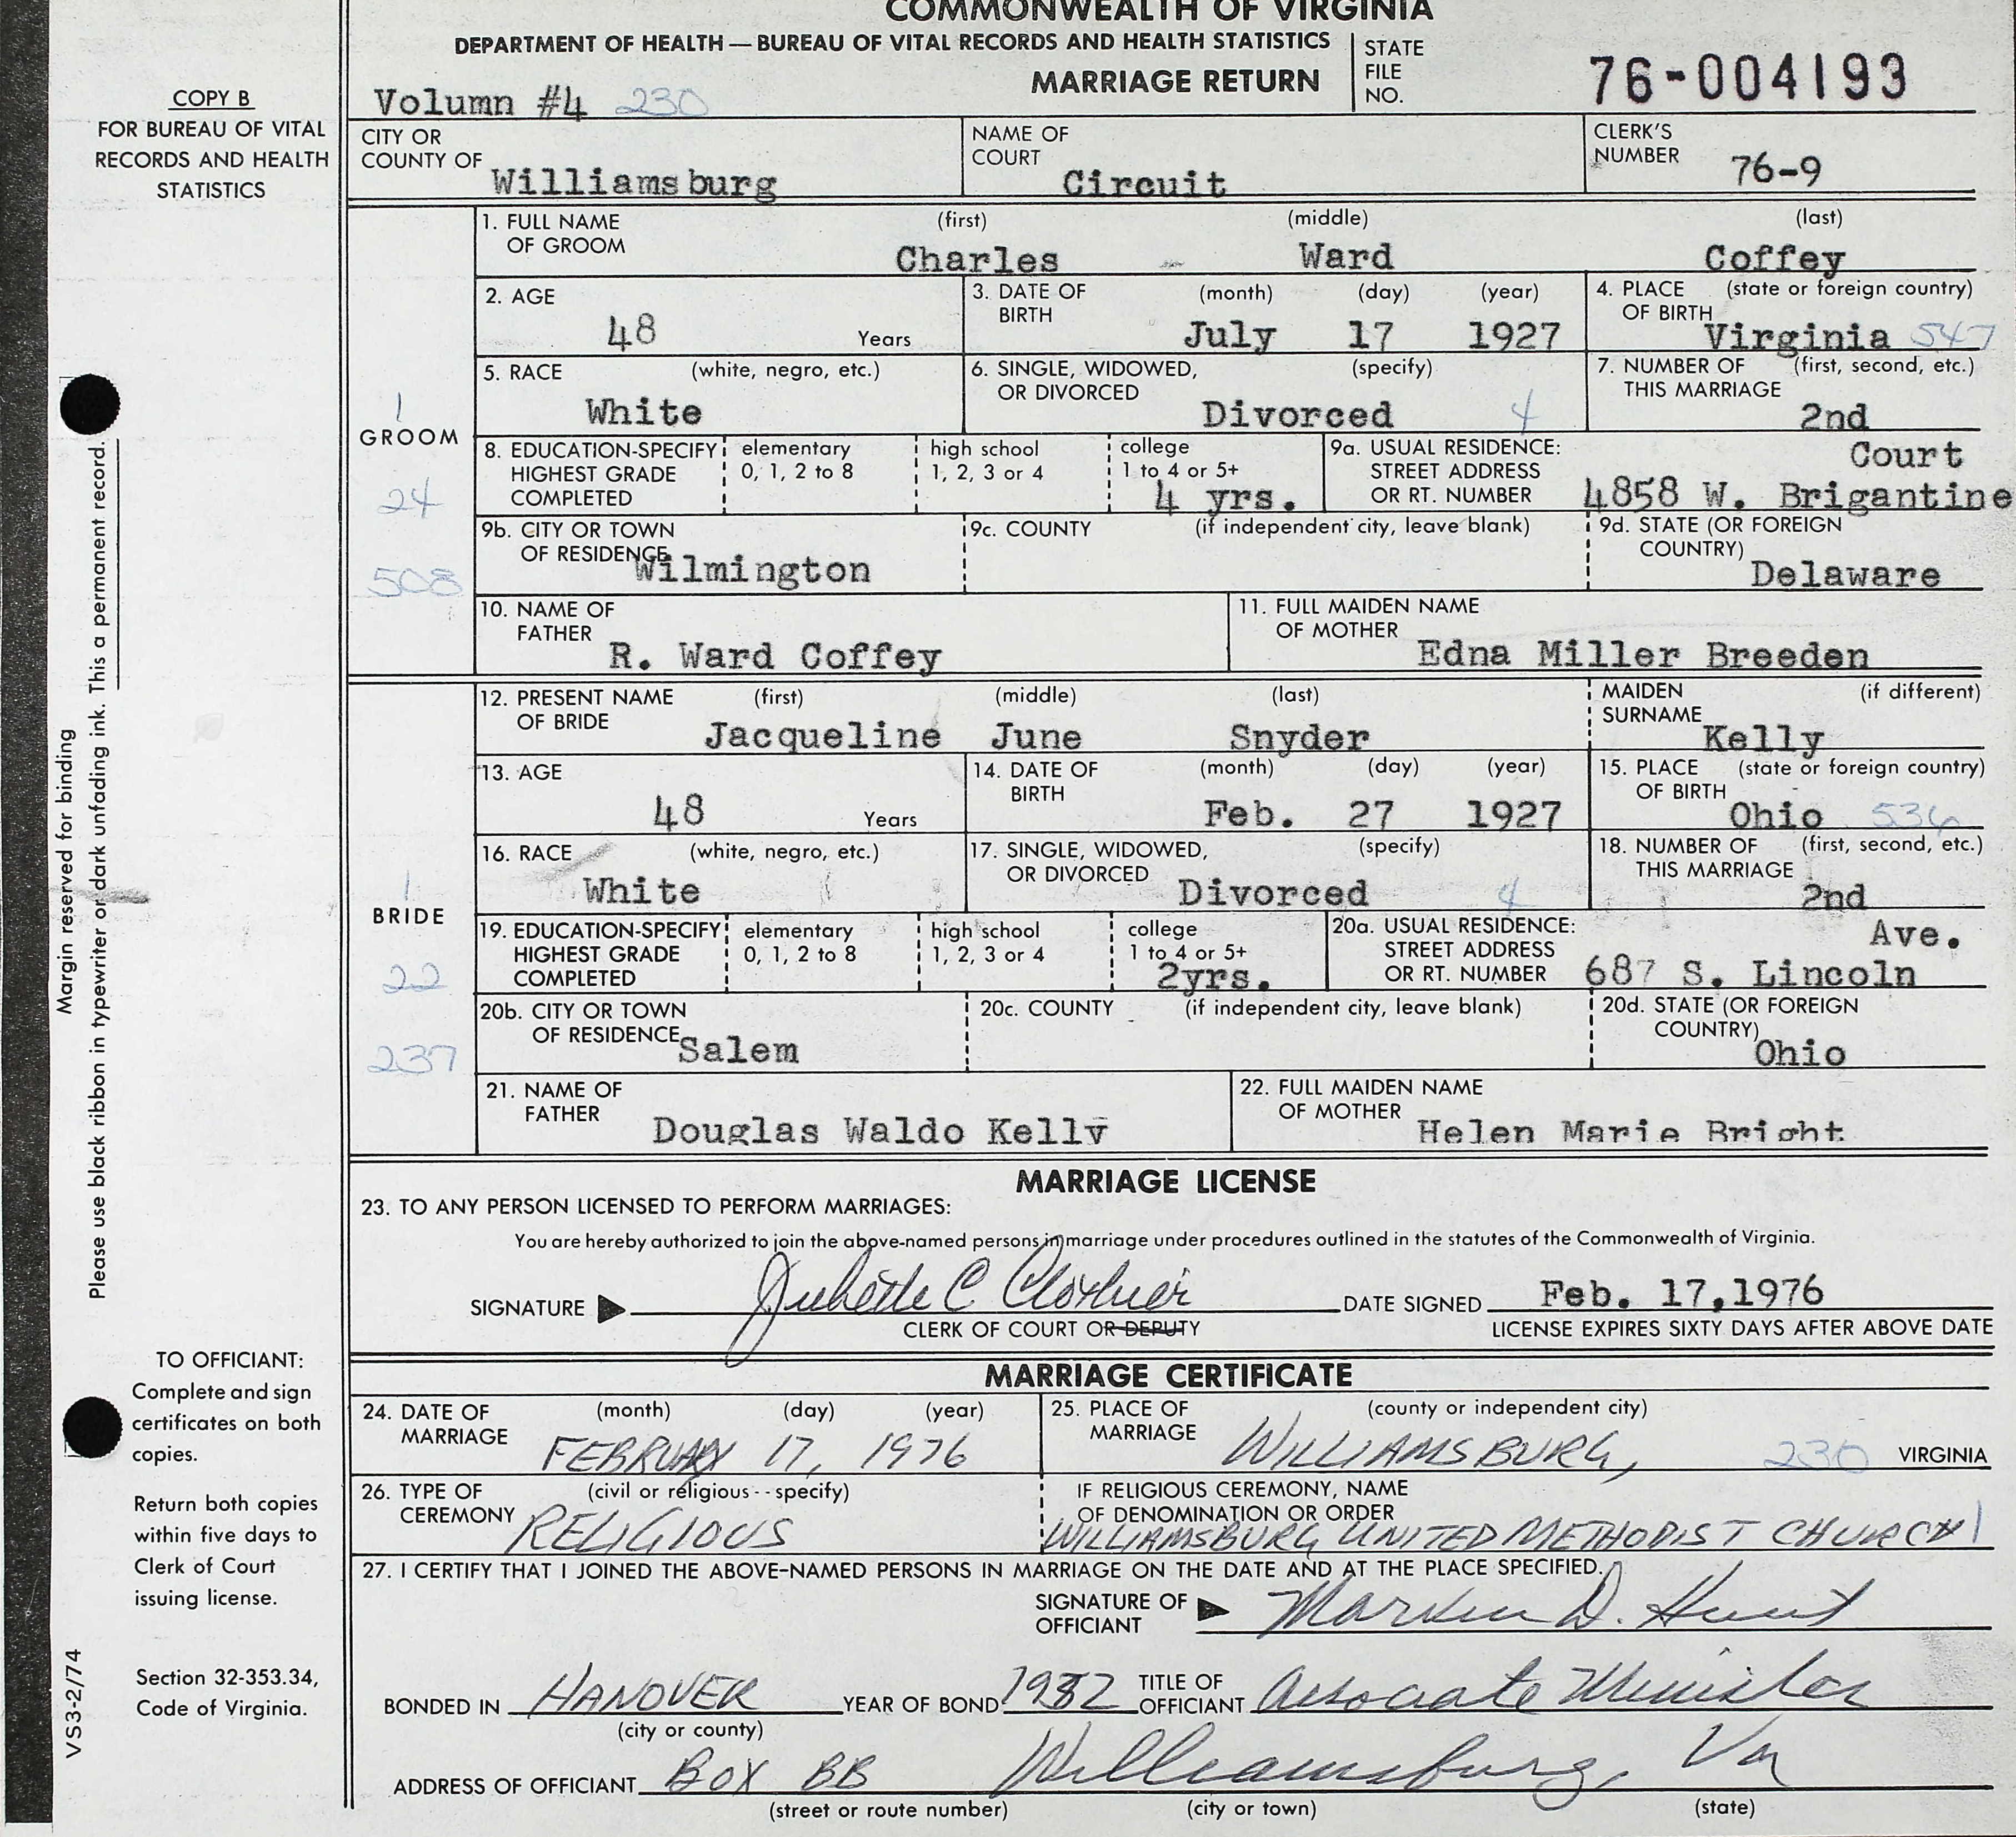 COMMONWEALTH OF VIRGINIA
DEPARTMENT OF HEALTH — BUREAU OF VITAL RECORDS AND HEALTH STATISTICS
MARRIAGE RETURN
STATE FILE NO. 76-004193
Volumn #4 230
COPY B
FOR BUREAU OF VITAL
RECORDS AND HEALTH
STATISTICS
CITY OR COUNTY OF Williamsburg
NAME OF COURT Circuit
CLERK'S NUMBER 76-9
GROOM
1
24
508
1. FULL NAME OF GROOM (first) (middle) (last)
Charles Ward Coffey
2. AGE 48 Years
3. DATE OF BIRTH (month) (day) (year)
July 17 1927
4. PLACE OF BIRTH (state or foreign country)
Virginia 547
5. RACE (white, negro, etc.)
White
6. SINGLE, WIDOWED, OR DIVORCED (specify)
Divorced 4
7. NUMBER OF THIS MARRIAGE (first, second, etc.)
2nd
8. EDUCATION-SPECIFY HIGHEST GRADE COMPLETED
elementary 0, 1, 2 to 8
high school 1, 2, 3 or 4
college 1 to 4 or 5+
4 yrs.
9a. USUAL RESIDENCE: STREET ADDRESS OR RT. NUMBER
Court
4858 W. Brigantine
9b. CITY OR TOWN OF RESIDENCE
Wilmington
9c. COUNTY (if independent city, leave blank)
9d. STATE (OR FOREIGN COUNTRY)
Delaware
10. NAME OF FATHER
R. Ward Coffey
11. FULL MAIDEN NAME OF MOTHER
Edna Miller Breeden
BRIDE
1
22
237
12. PRESENT NAME OF BRIDE (first) (middle) (last)
Jacqueline June Snyder
MAIDEN SURNAME (if different)
Kelly
13. AGE 48 Years
14. DATE OF BIRTH (month) (day) (year)
Feb. 27 1927
15. PLACE OF BIRTH (state or foreign country)
Ohio 536
16. RACE (white, negro, etc.)
White
17. SINGLE, WIDOWED, OR DIVORCED (specify)
Divorced 4
18. NUMBER OF THIS MARRIAGE (first, second, etc.)
2nd
19. EDUCATION-SPECIFY HIGHEST GRADE COMPLETED
elementary 0, 1, 2 to 8
high school 1, 2, 3 or 4
college 1 to 4 or 5+
2yrs.
20a. USUAL RESIDENCE: STREET ADDRESS OR RT. NUMBER
Ave.
687 S. Lincoln
20b. CITY OR TOWN OF RESIDENCE
Salem
20c. COUNTY (if independent city, leave blank)
20d. STATE (OR FOREIGN COUNTRY)
Ohio
21. NAME OF FATHER
Douglas Waldo Kelly
22. FULL MAIDEN NAME OF MOTHER
Helen Marie Bright
MARRIAGE LICENSE
23. TO ANY PERSON LICENSED TO PERFORM MARRIAGES:
You are hereby authorized to join the above-named persons in marriage under procedures outlined in the statutes of the Commonwealth of Virginia.
SIGNATURE C DATE SIGNED Feb. 17,1976
CLERK OF COURT OR DEPUTY LICENSE EXPIRES SIXTY DAYS AFTER ABOVE DATE
MARRIAGE CERTIFICATE
24. DATE OF MARRIAGE (month) (day) (year)
FEBRUARY 17, 1976
25. PLACE OF MARRIAGE (county or independent city)
WILLIAMSBURG, 230 VIRGINIA
26. TYPE OF CEREMONY (civil or religious--specify)
RELIGIOUS
IF RELIGIOUS CEREMONY, NAME OF DENOMINATION OR ORDER
WILLIAMSBURG UNITED METHODIST CHURCH 1
27. I CERTIFY THAT I JOINED THE ABOVE-NAMED PERSONS IN MARRIAGE ON THE DATE AND AT THE PLACE SPECIFIED.
SIGNATURE OF OFFICIANT D. Hunt
BONDED IN HANOVER YEAR OF BOND TITLE OF OFFICIANT Associate Minister
(city or county)
ADDRESS OF OFFICIANT BOX BB Williamsburg, Va
(street or route number) (city or town) (state)
Margin reserved for binding
Please use black ribbon in typewriter or dark unfading ink. This a permanent record.
TO OFFICIANT:
Complete and sign
certificates on both
copies.
Return both copies
within five days to
Clerk of Court
issuing license.
Section 32-353.34,
Code of Virginia.
VS3-2/74